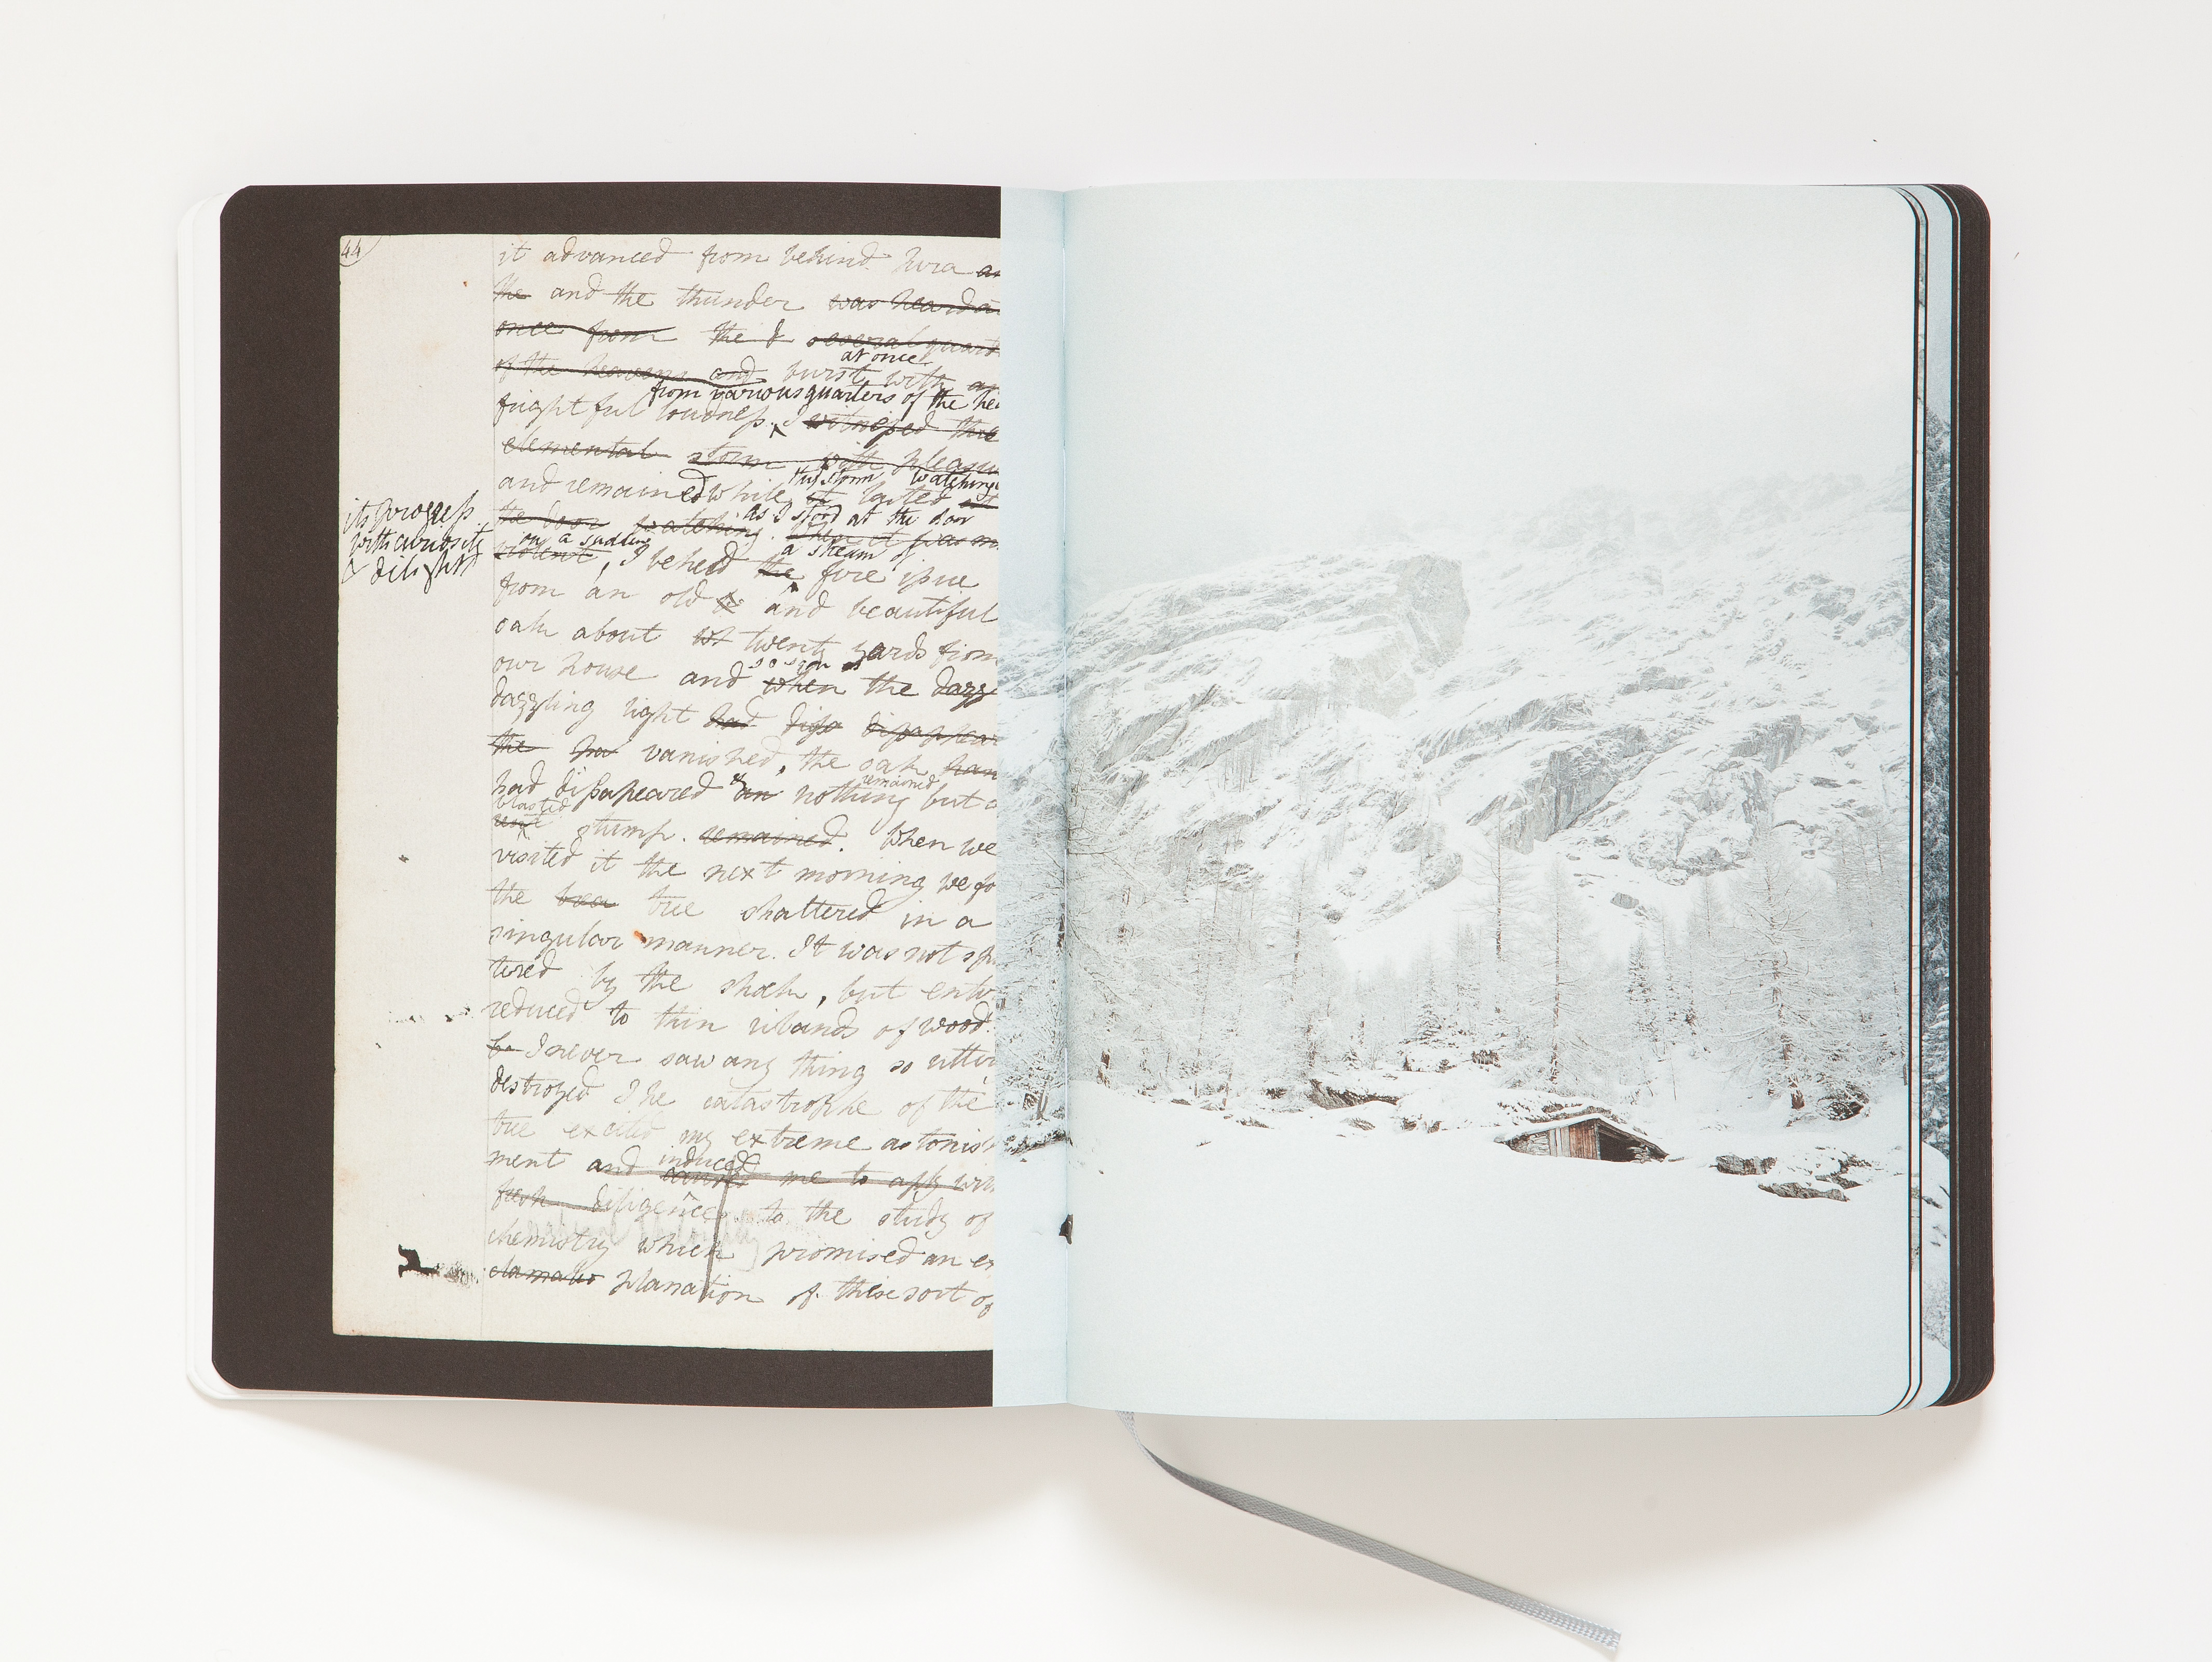 44
it advanced from behind Jura
the and the thunder was heard a
once from the several quart
at once
of the heavens and burst with
from various quarters of the hea
frightful loudness. I witnessed this
elemental storm with pleasu
this storm watching
and remained while it lasted at
as I stood at the door
the door watching. When it was m
on a sudden a stream of
violent, I beheld the fire issue
its progress
with curiosity
& delight
from an old and beautiful
oak about twenty yards from
our house and
so soon as
when the dazz
dazzling light had disa disappear
the vanished, the oak
had disappeared & an nothing but a
remained
blasted
stump. remained. When we
visited it the next morning we fo
the tree shattered in a
singular manner. It was not spli
tered by the shock, but entir
reduced to thin ribands of wood.
be I never saw any thing so utter
destroyed The catastrophe of the
tree excited my extreme astonish
induced
ment and caused me to aply with
fresh diligence to the study of
chemistry which promised an ex
planation of these sort of